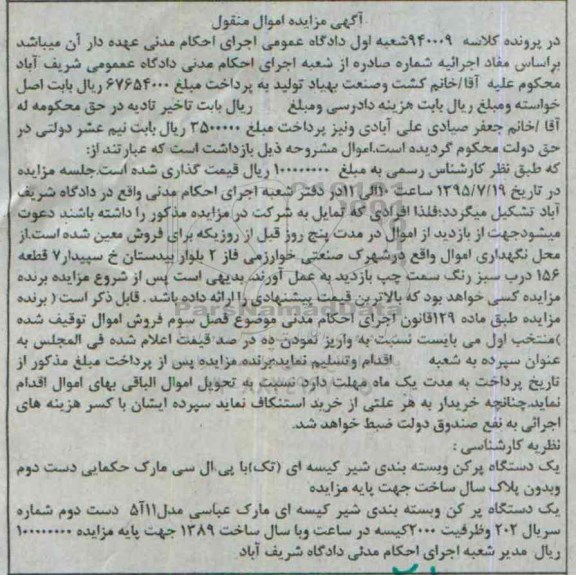 آگهی مزایده اموال منقول
در پرونده کلاسه ۹۴۰۰۰۹شعبه اول دادگاه عمومی اجرای احکام مدنی عهده دار آن میباشد
براساس مفاد اجرائیه شماره صادره از شعبه اجرای احکام مدنی دادگاه عممومی شریف آباد
محکوم علیه آقا/خانم کشت وصنعت بهیاد تولید به پرداخت مبلغ ۶۷۶۵۴۰۰۰ ریال بابت اصل
خواسته ومبلغ ریال بابت هزینه دادرسی ومبلغ ریال بابت تاخیر تادیه در حق محکومه له
آقا /خانم جعفر صیادی علی آبادی ونیز پرداخت مبلغ ۳۵۰۰۰۰۰ ریال بابت نیم عشر دولتی در
حق دولت محکوم گردیده است.اموال مشروحه ذیل بازداشت است که عبارتند از:
که طبق نظر کارشناس رسمی به مبلغ ۱۰۰۰۰۰۰۰۰ ریال قیمت گذاری شده است.جلسه مزایده
در تاریخ ۱۳۹۵/۷/۱۹ ساعت ۱۰الی۱۱در دفتر شعبه اجرای احکام مدنی واقع در دادگاه شریف
آباد تشکیل میگردد:فلذا افرادی که تمایل به شرکت در مزایده مذکور را داشته باشند دعوت
میشودجهت از بازدید از اموال در مدت پنج روز قبل از روزیکه برای فروش معین شده است.از
محل نگهداری اموال واقع درشهرک صنعتی خوارزمی فاز ۲ بلوار بیدستان خ سپیدار۷ قطعه
۱۵۶ درب سبز رنگ سمت چپ بازدید به عمل آورند. بدیهی است پس از شروع مزایده برنده
مزایده کسی خواهد بود که بالاترین قیمت پیشنهادی را ارائه داده باشد . قابل ذکر است ( برنده
مزایده طبق ماده ۱۲۹قانون اجرای احکام مدنی موضوع فصل سوم فروش اموال توقیف شده
)منتخب اول می بایست نسبت به واریز نمودن ده در صد قیمت اعلام شده فی المجلس به
عنوان سپرده به شعبه اقدام وتسلیم نماید.برنده مزایده پس از پرداخت مبلغ مذکور از
تاریخ پرداخت به مدت یک ماه مهلت دارد نسبت به تحویل اموال الباقی بهای اموال اقدام
نماید.چنانچه خریدار به هر علتی از خرید استنکاف نماید سپرده ایشان با کسر هزینه های
اجرائی به نفع صندوق دولت ضبط خواهد شد.
نظریه کارشناسی :
یک دستگاه پرکن وبسته بندی شیر کیسه ای (تک)با پی.ال سی مارک حکمایی دست دوم
وبدون پلاک سال ساخت جهت پایه مزایده
یک دستگاه پر کن وبسته بندی شیر کیسه ای مارک عباسی مدل۵آ۱۱ دست دوم شماره
سریال ۲۰۲ وظرفیت ۲۰۰۰کیسه در ساعت وبا سال ساخت ۱۳۸۹ جهت پایه مزایده ۱۰۰۰۰۰۰۰۰
ریال مدیر شعبه اجرای احکام مدنی دادگاه شریف آباد
ParsNamadData